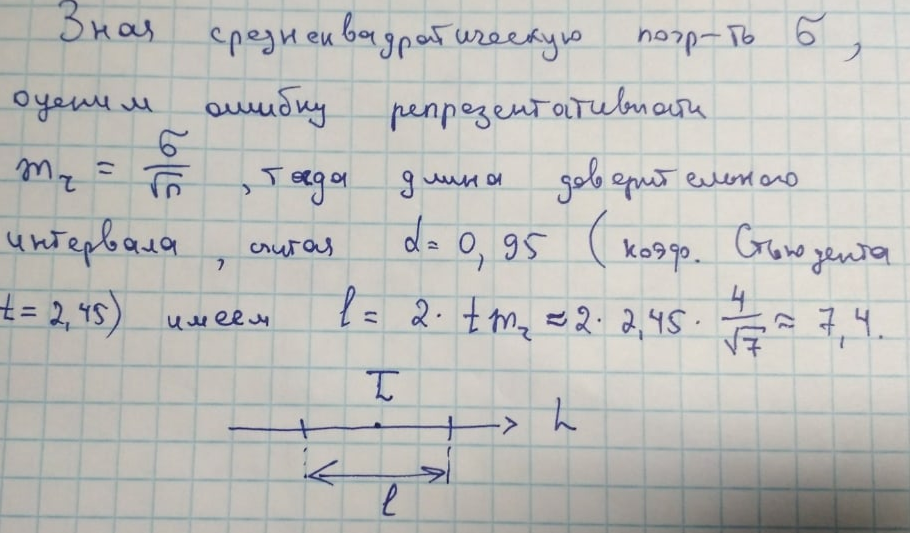 Зная среднеквадратическую погр-ть σ,
оценим ошибку репрезентативности
m_r = σ/√n, тогда длина доверительного
интервала, считая α = 0,95 (коэф. Стьюдента
t = 2,45) имеем l = 2 · t m_r ≈ 2 · 2,45 · 4/√7 ≈ 7,4.
L
l